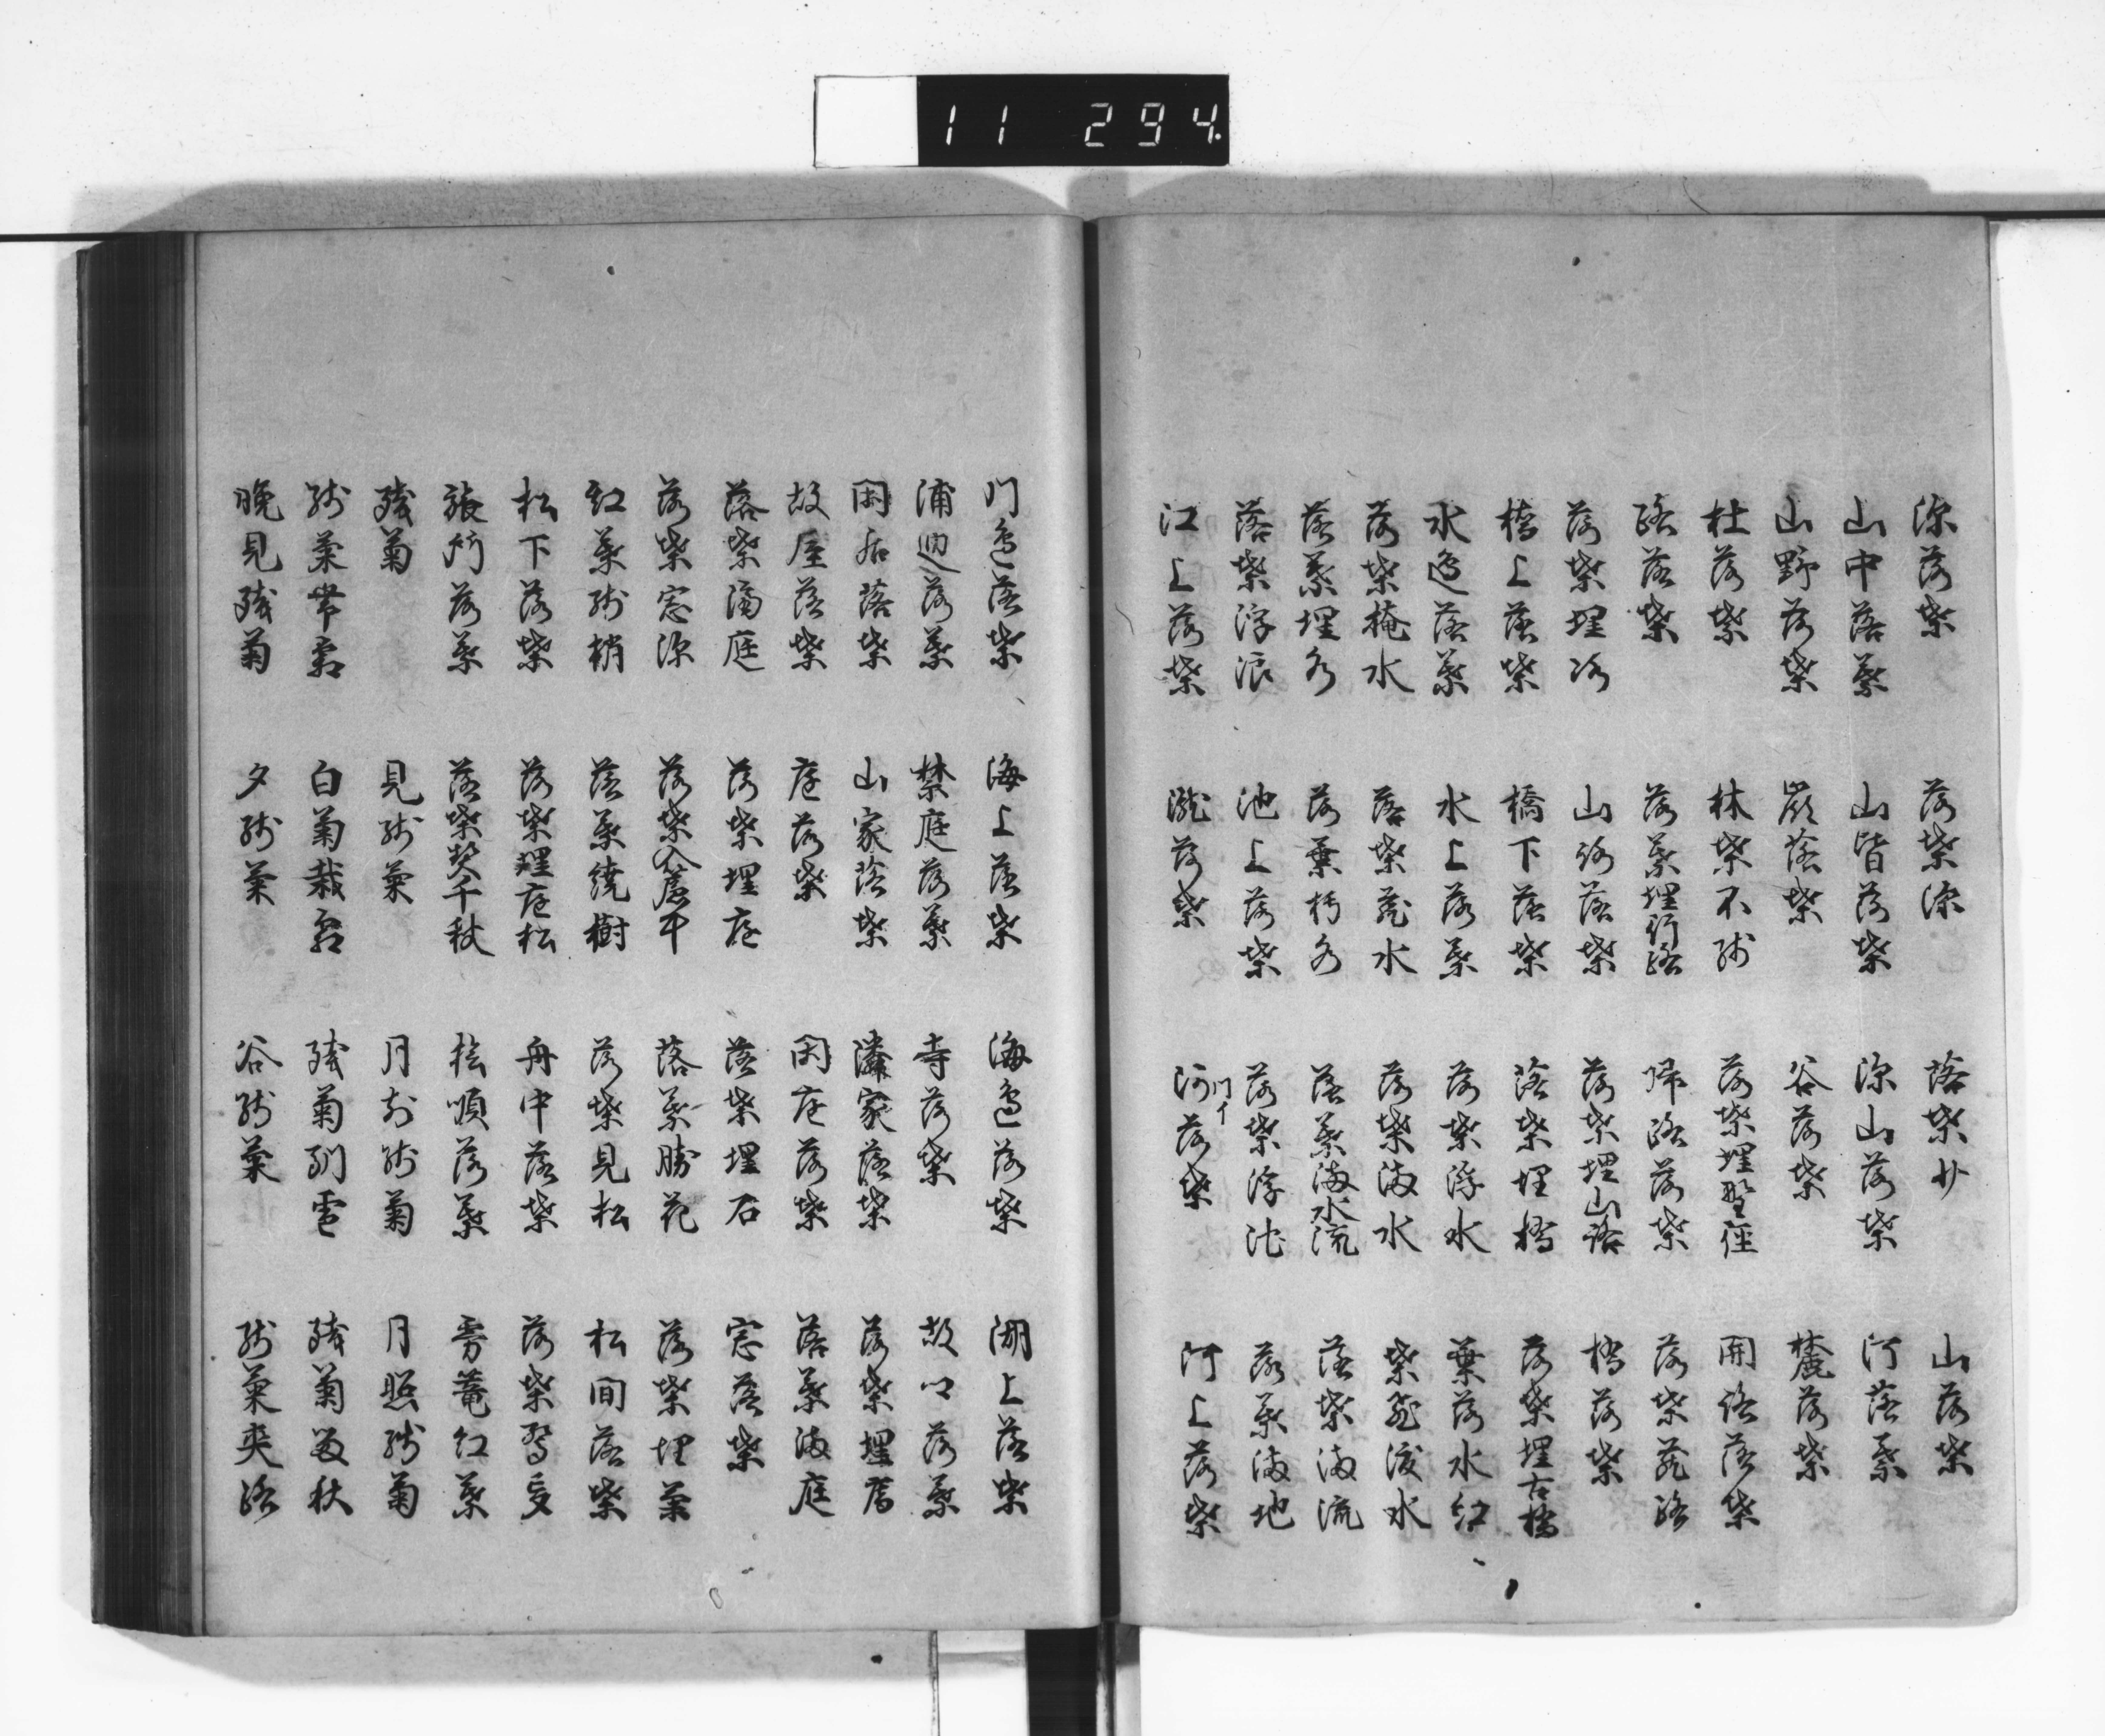 11 294.
深落葉 落葉深 落葉少 山落葉
山中落葉 山皆落葉 深山落葉 河落葉
山野落葉 嶺落葉 谷落葉 麓落葉
杜落葉 林葉不残 落葉埋野径 開路落葉
路落葉 落葉埋行路 帰路落葉 落葉蔵路
落葉埋路 山路落葉 落葉埋山路 橋落葉
橋上落葉 橋下落葉 落葉埋橋 落葉埋古橋
水邊落葉 水上落葉 落葉浮水 葉落水紅
落葉掩水 落葉蔵水 落葉満水 葉飛渡水
落葉埋水 落葉朽水 落葉満水流 落葉満流
落葉浮浪 池上落葉 落葉浮池 落葉満地
江上落葉 瀧落葉 河落葉 河上落葉
門イ
門邊落葉 海上落葉 海邊落葉 湖上落葉
浦辺落葉 禁庭落葉 寺落葉 故郷落葉
閑居落葉 山家落葉 隣家落葉 落葉埋落
故屋落葉 庭落葉 閑庭落葉 落葉満庭
落葉満庭 落葉埋庭 落葉埋石 窓落葉
落葉窓深 落葉入簾中 落葉勝花 落葉埋菊
紅葉残梢 落葉繞樹 落葉見松 松間落葉
松下落葉 落葉埋庭松 舟中落葉 落葉驚夢
旅行落葉 落葉契千秋 松順落葉 雰菴紅葉
残菊 見残菊 月前残菊 月照残菊
残菊帯霜 白菊栽霜 残菊到雪 残菊留秋
晩見残菊 夕残菊 谷残菊 残菊夾路